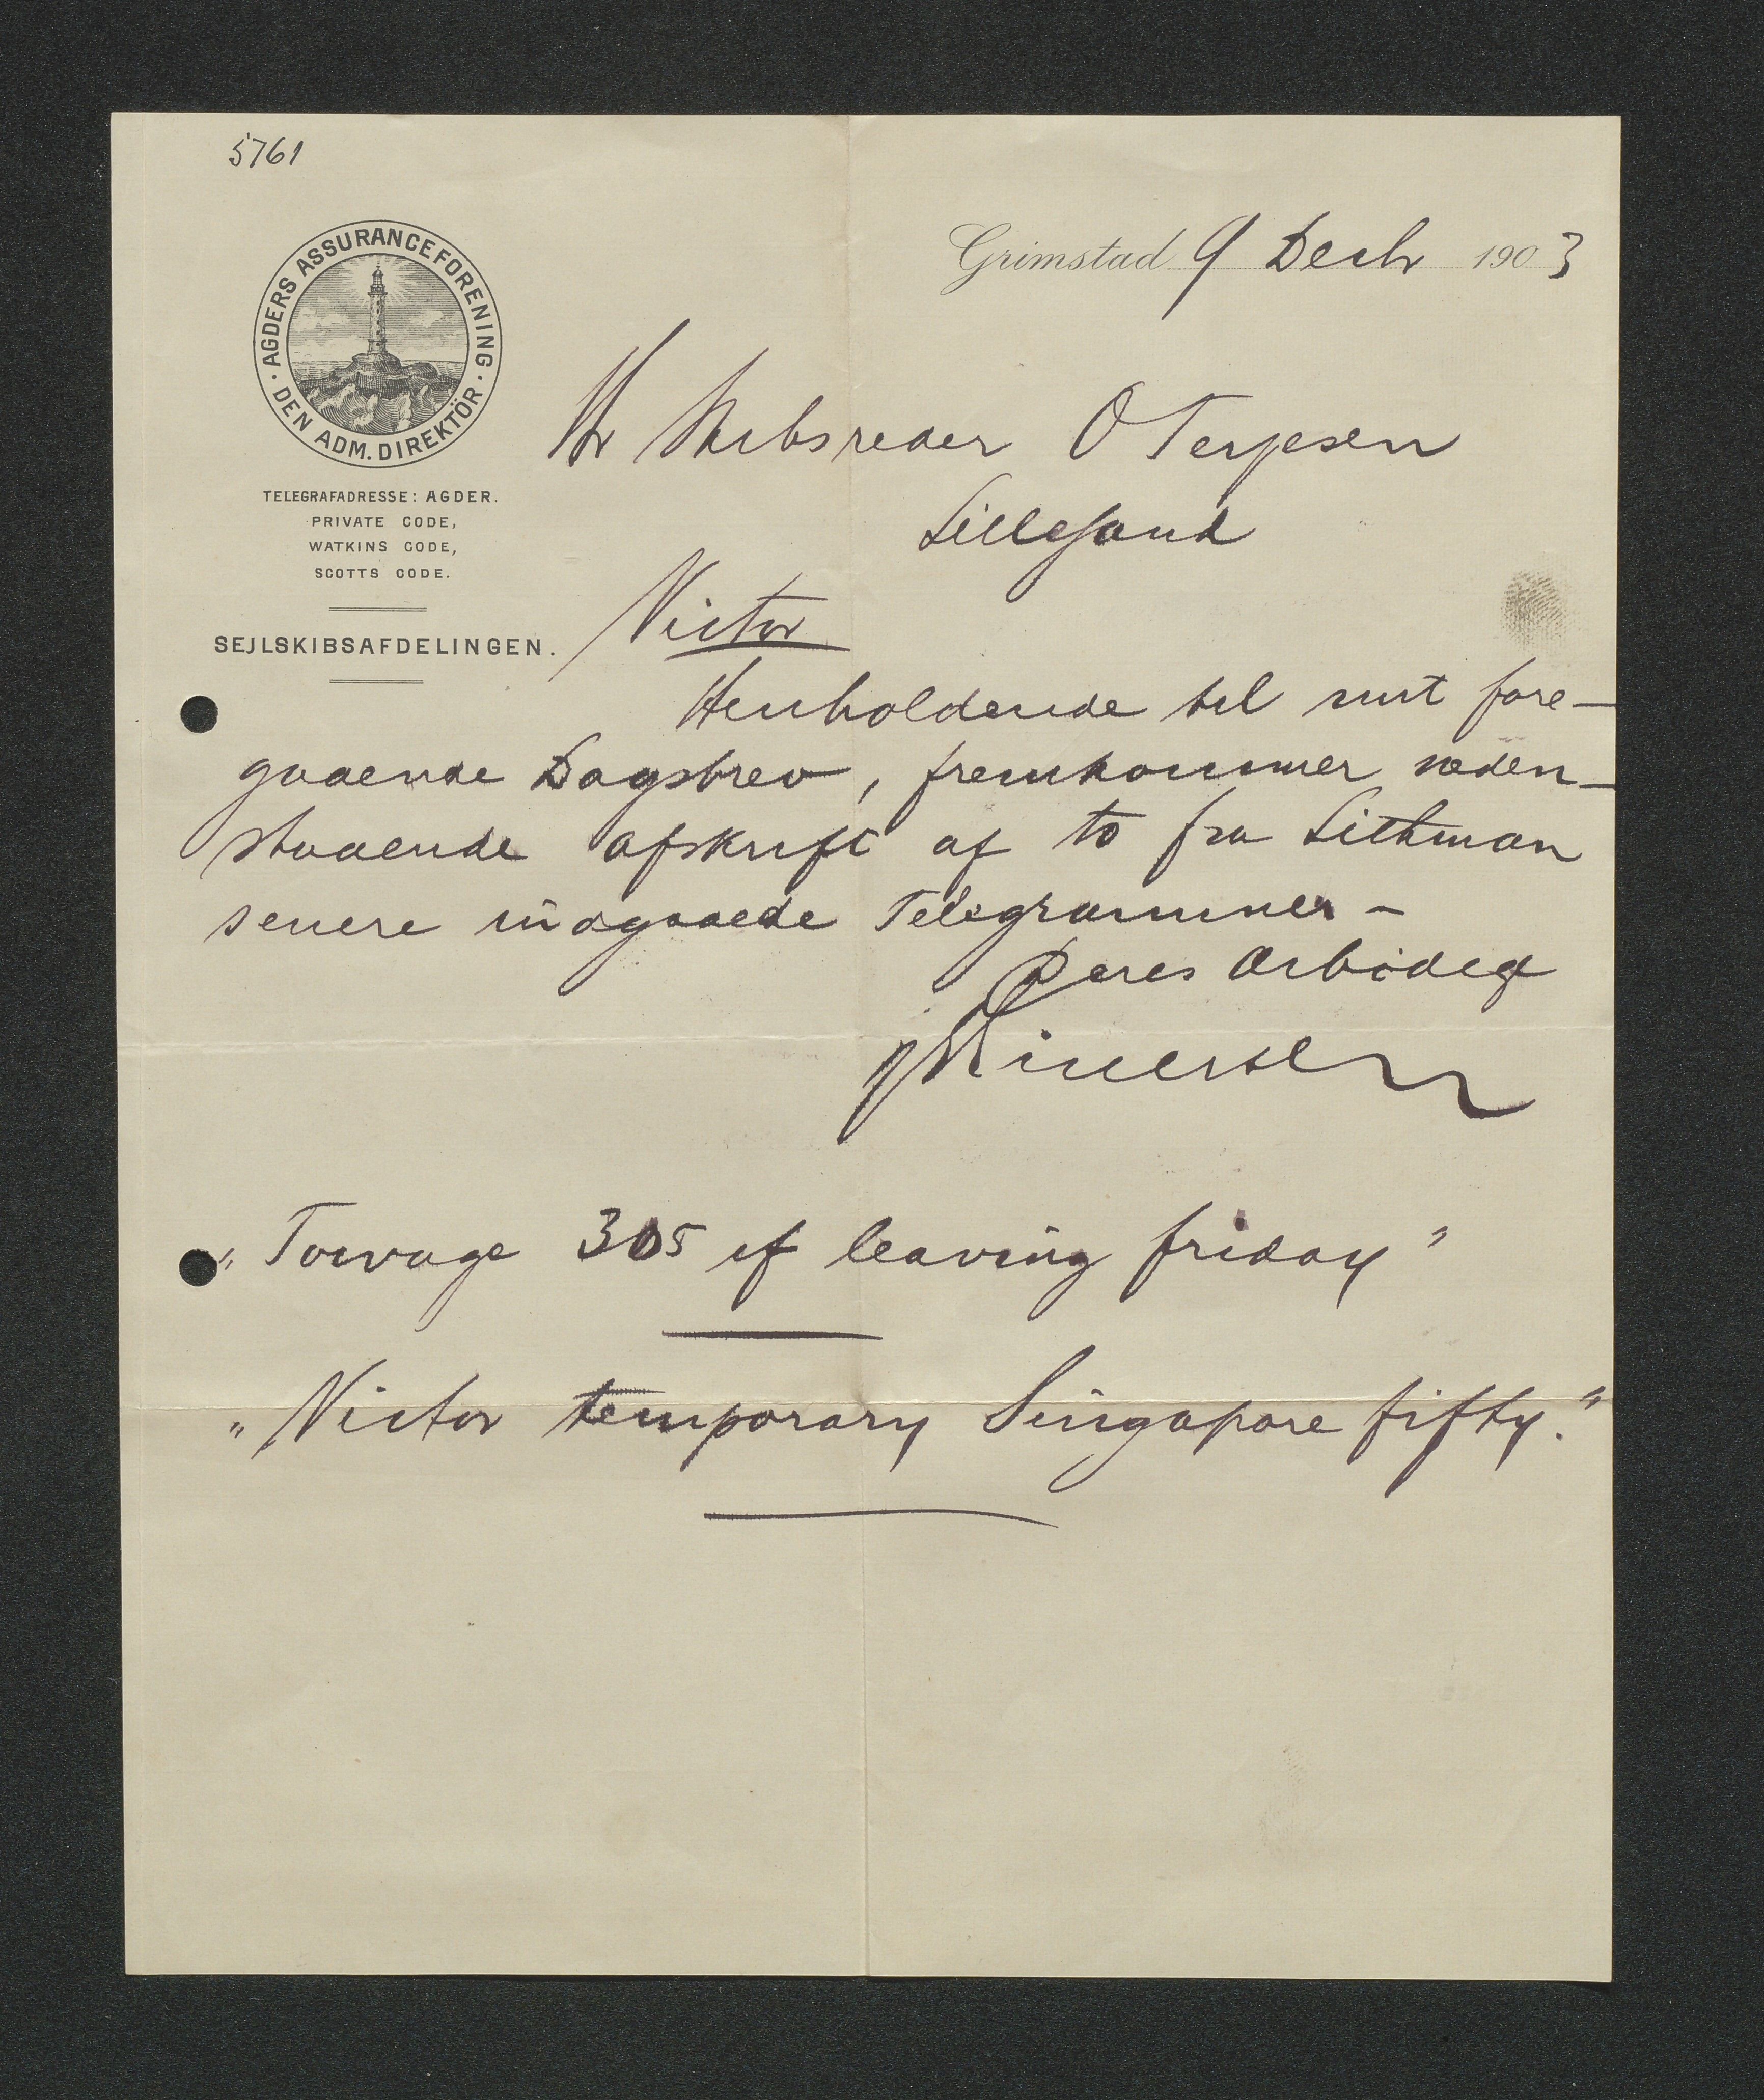 5761
AGDERS ASSURANCEFORENING · DEN ADM. DIREKTÖR ·
Grimstad 9 Decbr 1903
Hr Skibsreder O Terjesen
Lillesand
TELEGRAFADRESSE: AGDER.
PRIVATE CODE,
WATKINS CODE,
SCOTTS CODE.
SEJLSKIBSAFDELINGEN.
Victor
Henholdende til mit fore-
gaaende Dagsbrev, fremkommer neden-
staaende afskrift af to fra Lithman
senere indgaaede Telegrammer -
Deres Ærbödige
„Towage 305 if leaving friday"
„Victor temporary Singapore fifty."